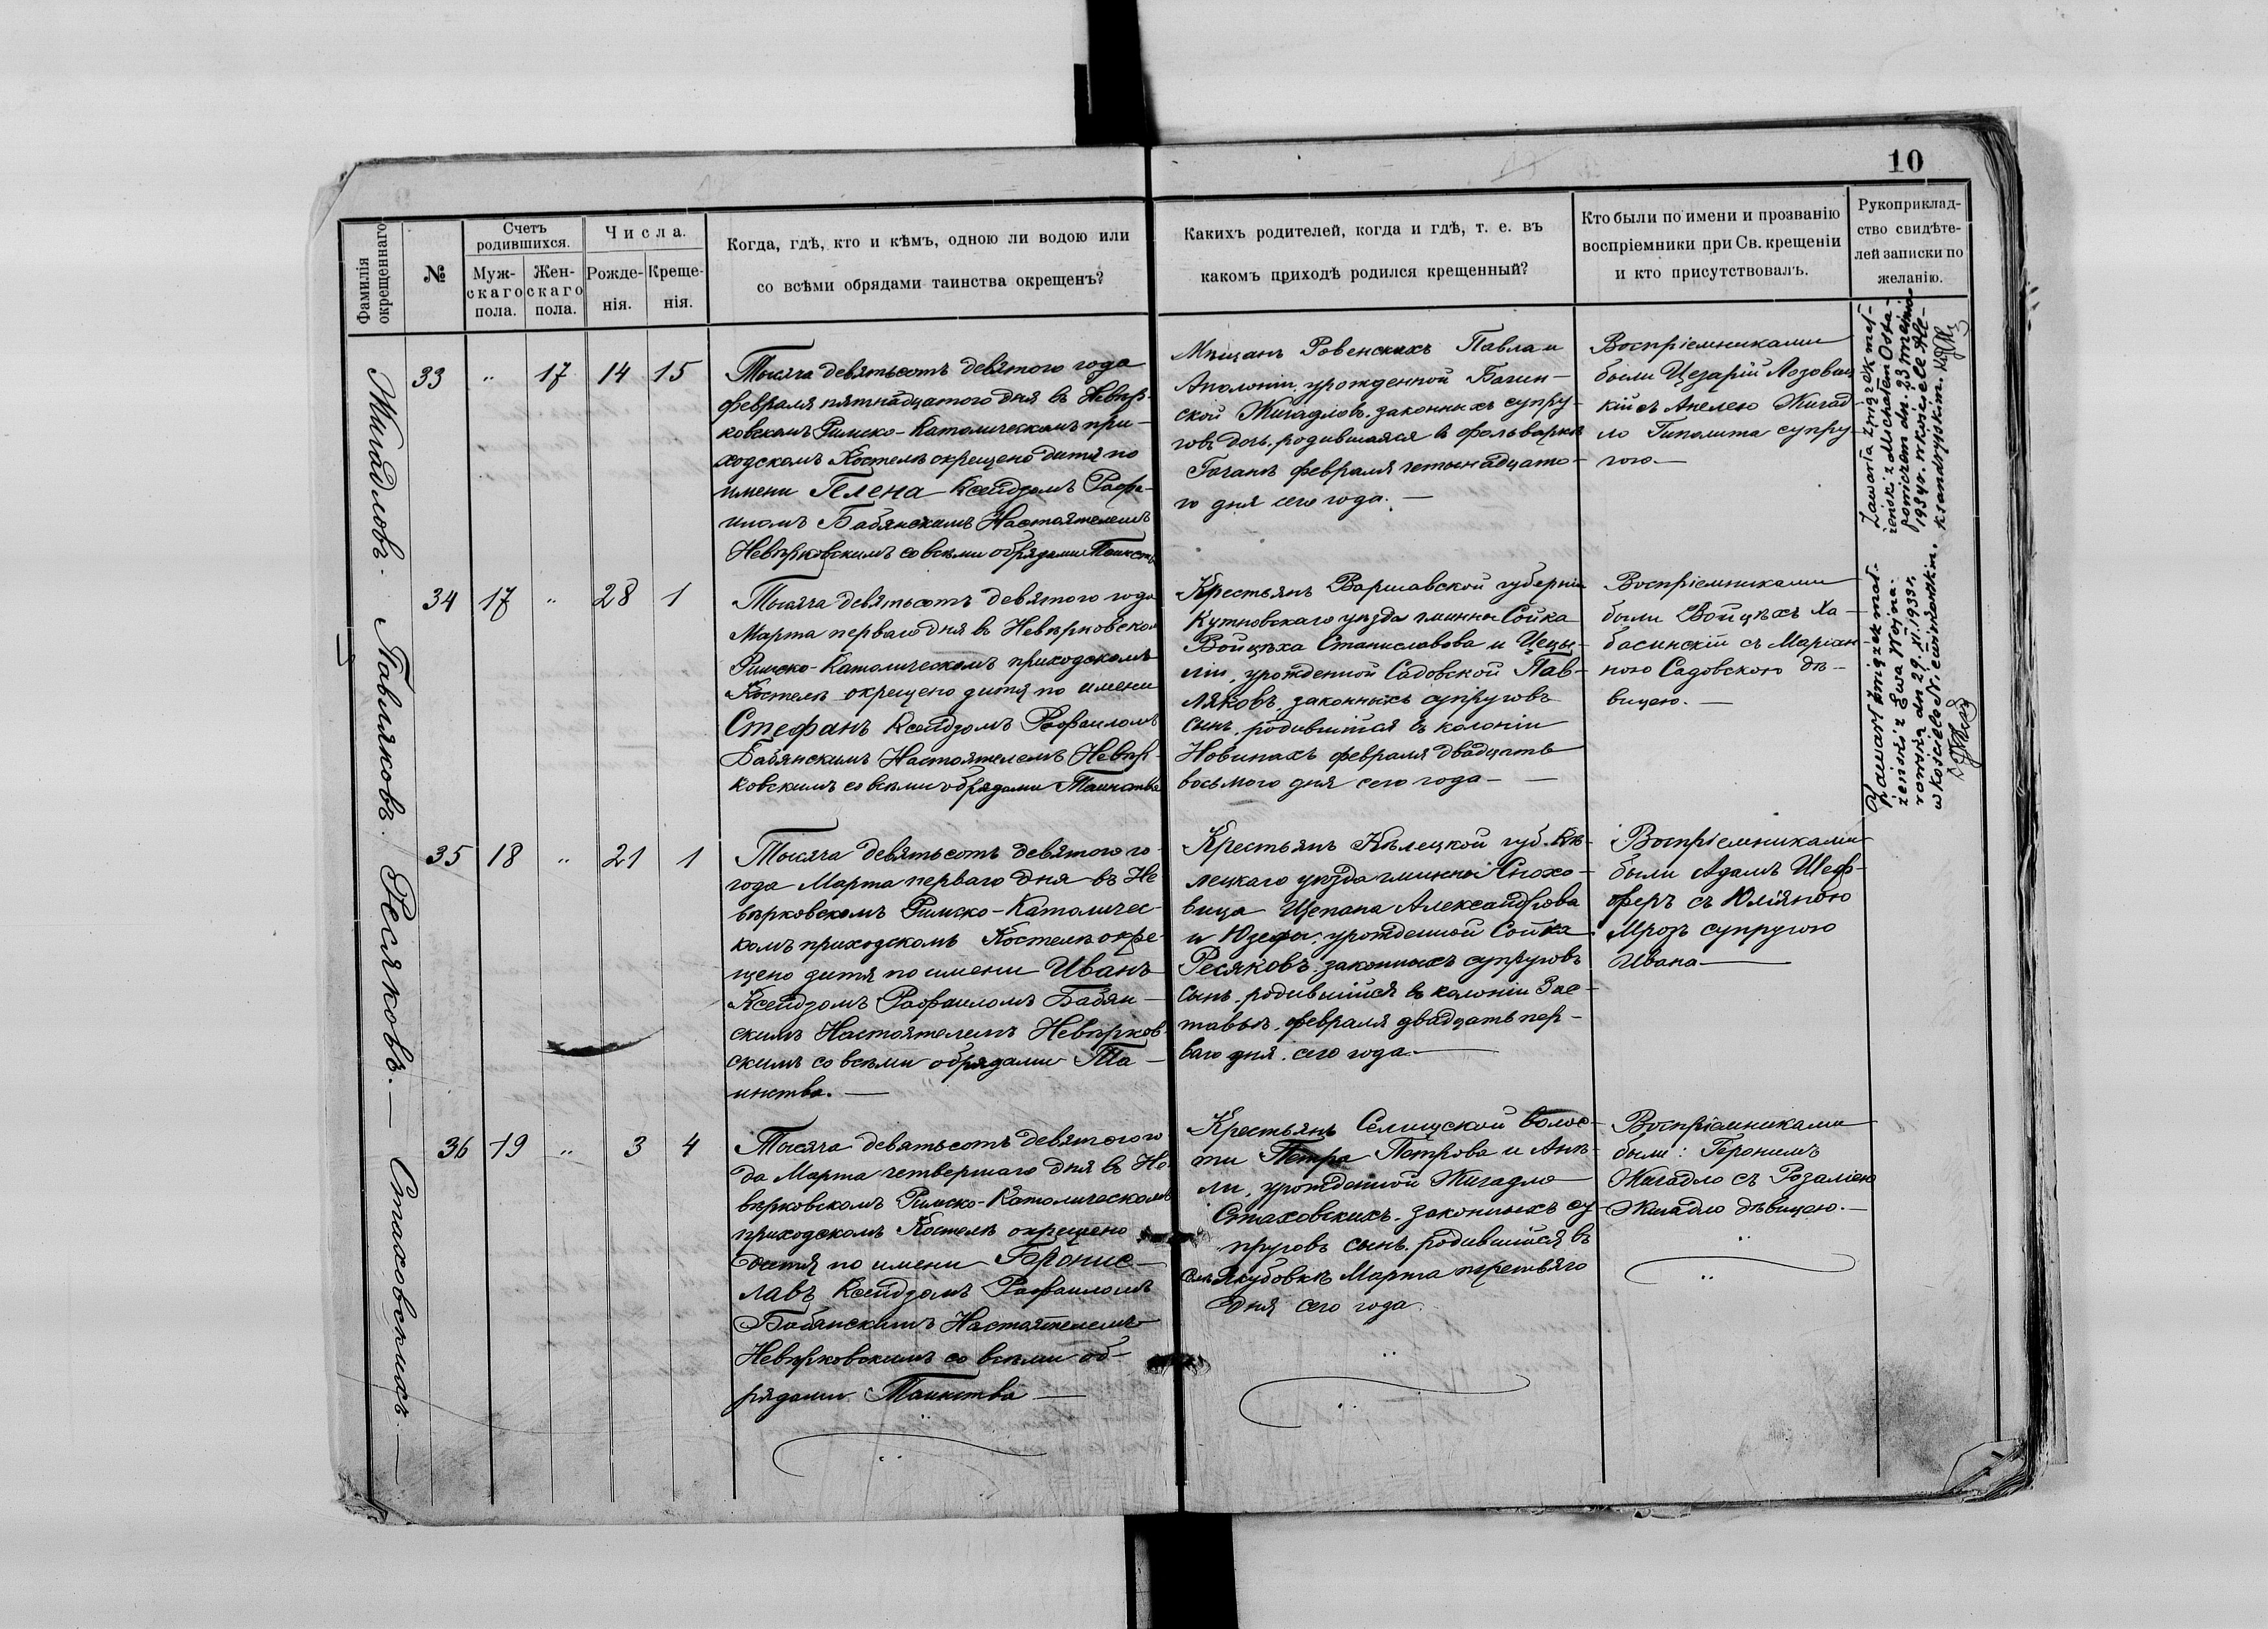 10
Фамилія
окрещеннаго
№
Счетъ
родившихся.
Муж-
скаго
пола.
Жен-
скаго
пола.
Числа.
Рожде-
нія.
Креще-
нія.
Когда, гдѣ, кто и кѣмъ, одною ли водою или
со всѣми обрядами таинства окрещенъ?
Какихъ родителей, когда и гдѣ, т. е. въ
какомъ приходѣ родился крещенный?
Кто были по имени и прозванію
воспріемники при Св. крещеніи
и кто присутствовалъ.
Рукоприклад-
ство свидѣте-
лей записки по
желанію.
Жигадловъ.
33 " 17 14 15
Тысяча девятьсотъ девятого года
февраля пятнадцатого дня въ Невѣр-
ковскомъ Римско-Католическомъ при-
ходскомъ Костелѣ окрещено дитя по
имени Гелена Ксендзомъ Рафа-
иломъ Бабянскимъ Настоятелемъ
Невѣрковскимъ со всѣми обрядами Таинств
Мѣщанъ Ровенскихъ Павла и
Аполоніи, урожденной Багин-
ской Жигадловъ, законныхъ супру-
говъ дочь, родившаяся в фольваркѣ
Гочанѣ февраля четырнадцато-
го дня сего года. —
Воспріемниками
были Цезарій Лозовиц
кій съ Анелею Жигад
ло Гиполита супру-
гою. —
Zawarła związek mał-
żeński z Michałem Osta-
powiczem dn. 23
1934 r. w kościele Ale-
ksandryjskim.
Павляковъ.
34 17 " 28 1
Тысяча девятьсотъ девятого года
Марта перваго дня въ Невѣрковском
Римско-Католическомъ приходскомъ
Костелѣ окрещено дитя по имени
Стефанъ Ксендзомъ Рафаиломъ
Бабянскимъ Настоятелемъ Невѣр-
ковскимъ со всѣми обрядами Таинства
Крестьянъ Варшавской губерніи
Кутновскаго уѣзда гмины Сойка
Войцѣха Станиславова и Цецы-
ліи, урожденной Садовской Пав-
ляковъ, законныхъ супруговъ
сынъ, родившійся в колоніи
Новинахъ февраля двадцать
восьмого дня сего года — —
Воспріемниками
были Войцѣхъ Ха-
басинскій съ Маріан-
ною Садовскою дѣ-
вицею. —
Zawarł związek mał-
żeński z Ewą Wojna-
rowską dn. 29. XI. 1933 r.
w kościele Niewirkowskim.
Ресяковъ. —
35 18 " 21 1
Тысяча девятьсотъ девятого го-
года Марта перваго дня въ Не
вѣрковскомъ Римско-Католичес-
комъ приходскомъ Костелѣ окре-
щено дитя по имени Иванъ
Ксендзомъ Рафаиломъ Бабян-
скимъ Настоятелемъ Невѣрков-
скимъ со всѣми обрядами Та-
инства. —
Крестьянъ Кѣлецкой губ. Кѣ-
лецкаго уѣзда гмины Снохо-
вица Щепана Александрова
и Юзефы, урожденной Сойка
Ресяковъ, законныхъ супруговъ
сынъ, родившійся в колоніи Зас-
тавьѣ, февраля двадцать пер-
ваго дня, сего года. —
Воспріемниками
были Адамъ Шеф-
феръ съ Юліяною
Мрозъ супругою
Ивана —
Стаховскихъ. —
36 19 " 3 4
Тысяча девятьсотъ девятого го
да Марта четвертаго дня въ Не
вѣрковскомъ Римско-Католическомъ
приходскомъ Костелѣ окрещено
дитя по имени Бронис-
лавъ Ксендзомъ Рафаиломъ
Бабянскимъ Настоятелемъ
Невѣрковскимъ со всѣми об-
рядами Таинства —
Крестьянъ Селищской волос-
ти Петра Петрова и Анѣ-
ли, урожденной Жигадло
Стаховскихъ, законныхъ су-
пруговъ сынъ, родившійся въ
сел. Якубовкѣ Марта третьяго
дня сего года.
Воспріемниками
были: Геронимъ
Жигадло съ Розаліею
Жигадло дѣвицею. —